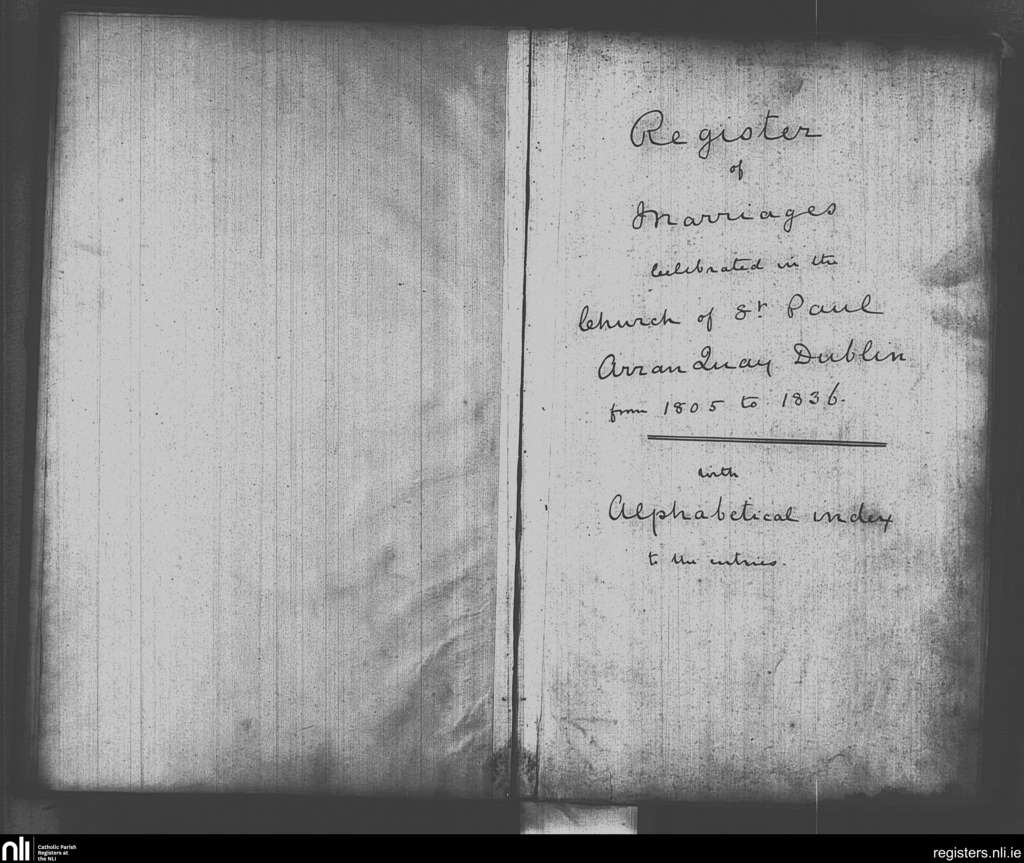 Register
of
Marriages
Celebrated in the
Church of St Paul
Arran Quay Dublin
from 1805 to 1836.
with
Alphabetical index
to the entries.
nli
Catholic Parish
Registers at
the NLI
registers.nli.ie